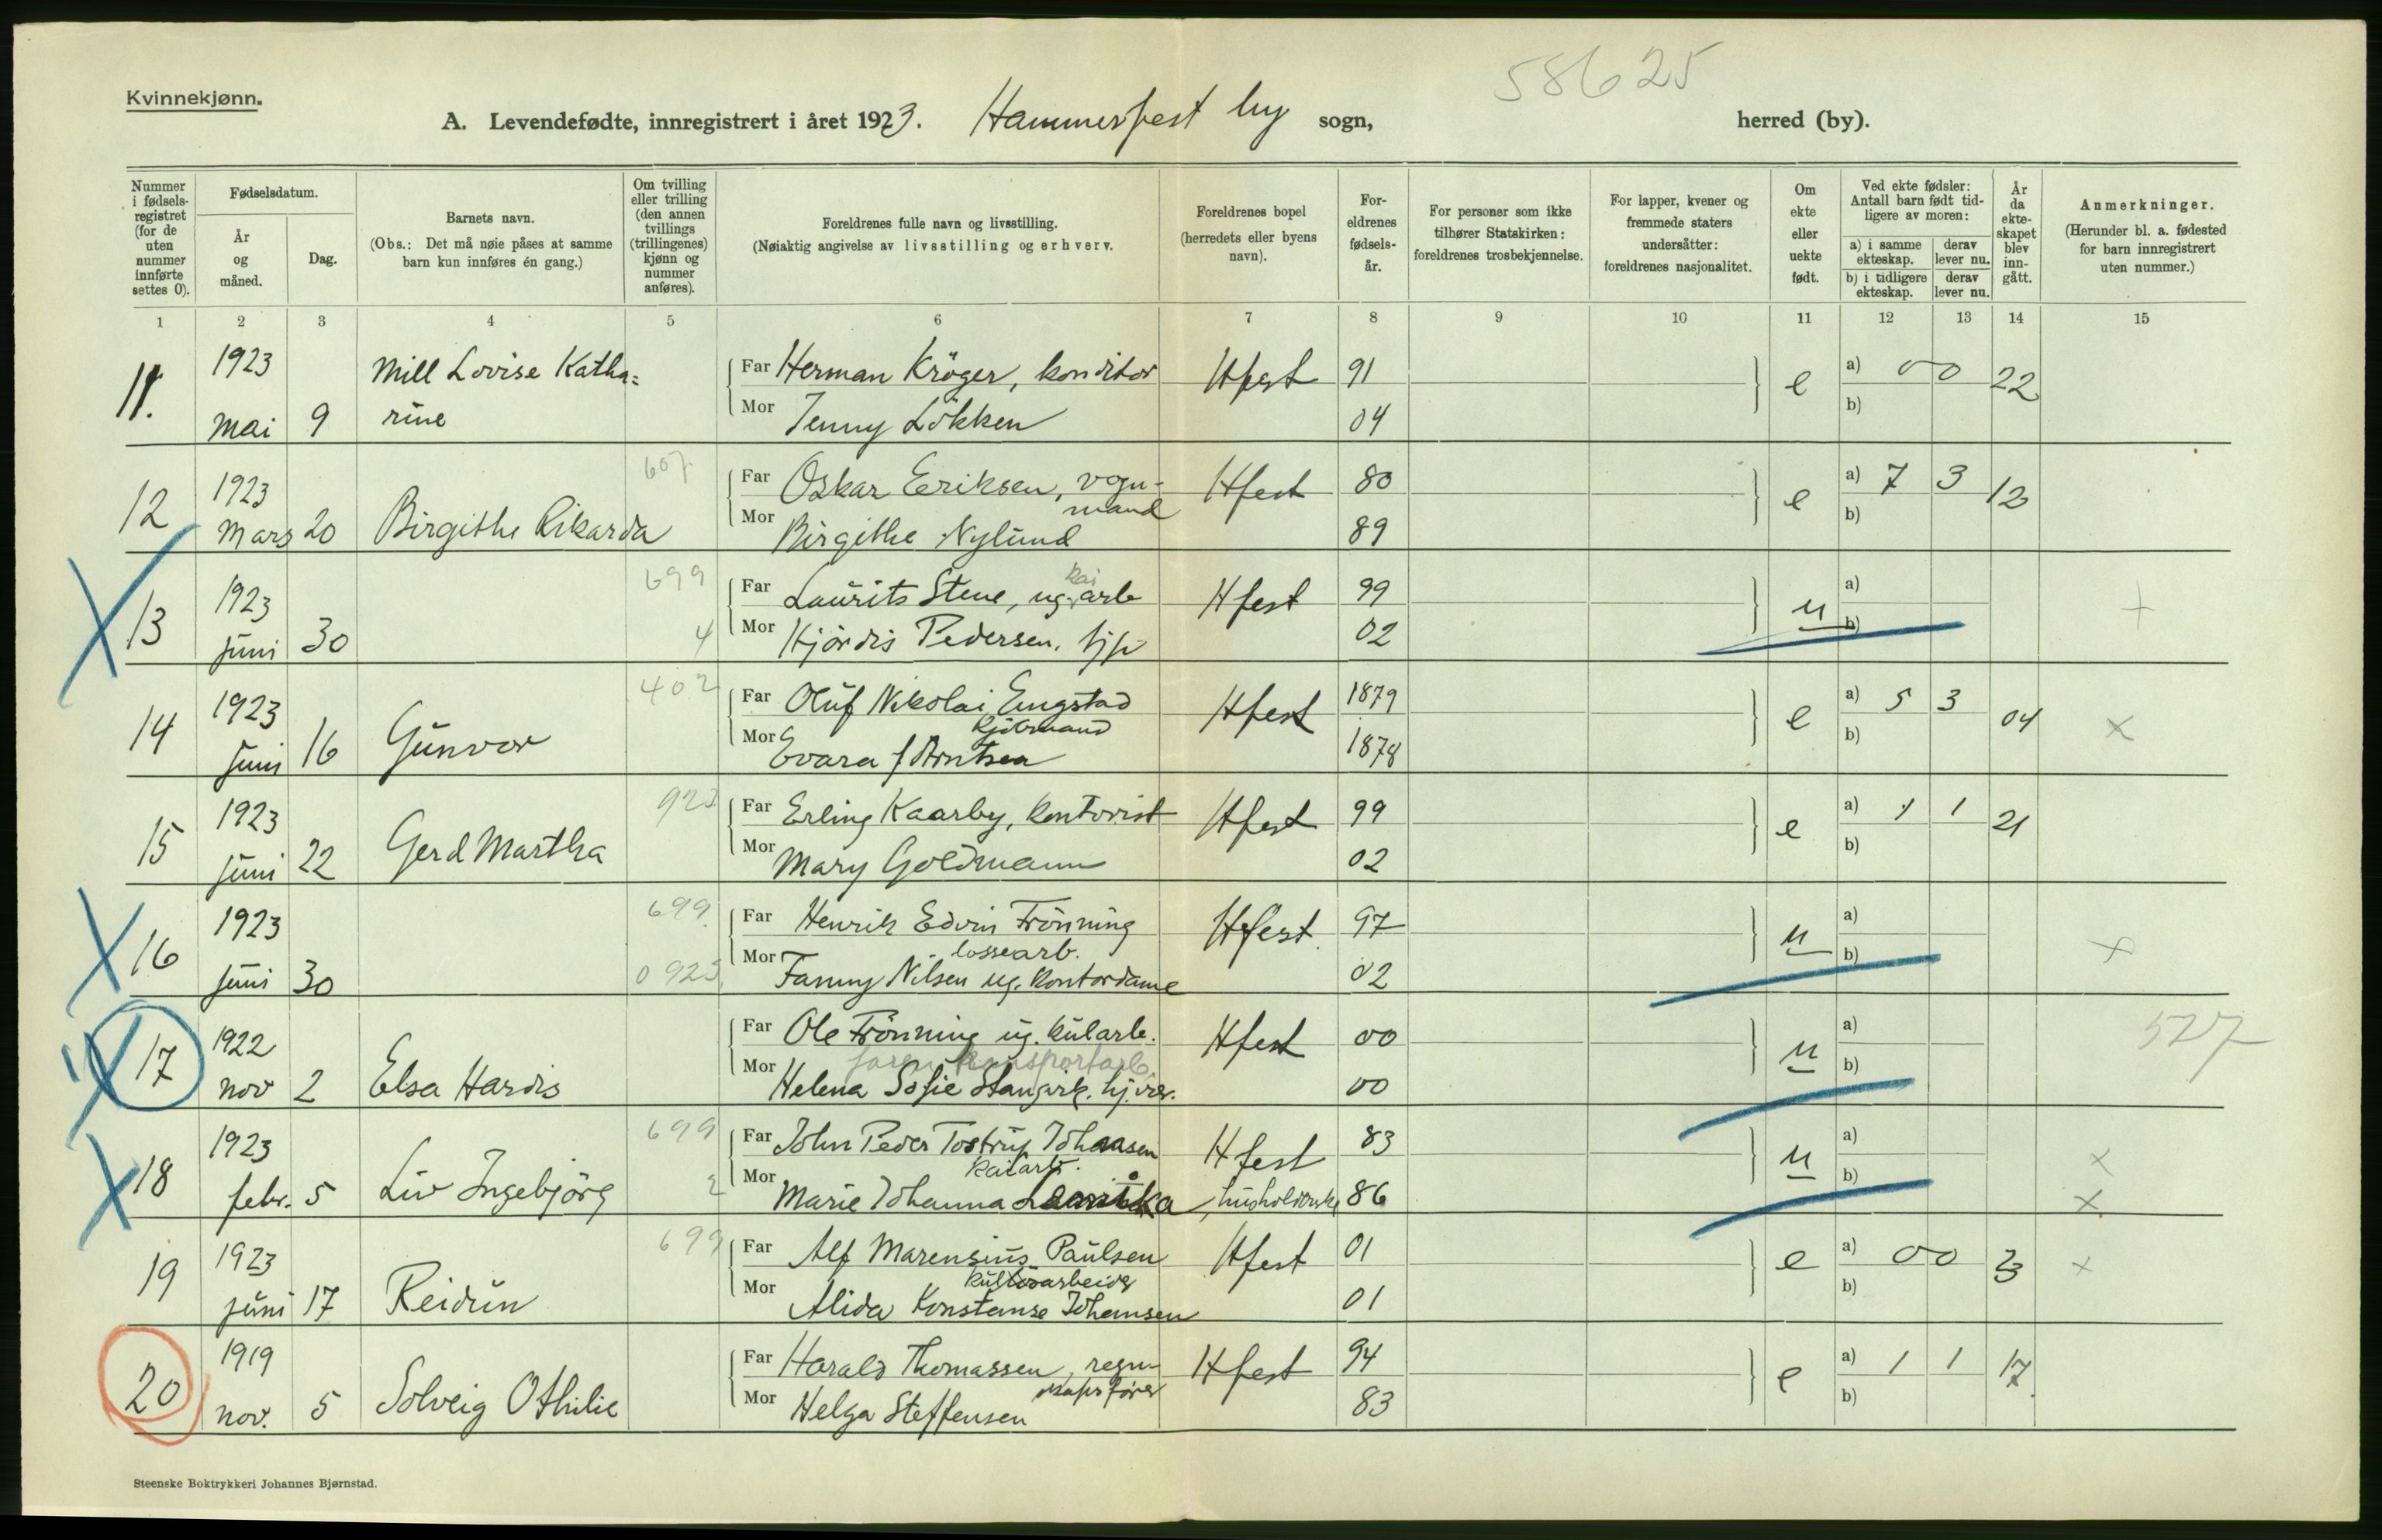 58625
Kvinnekjønn.
A. Levendefødte, innregistrert i året 1923. Hammerfest by sogn, herred (by).
Nummer i fødsels-registret (for de uten nummer innførte settes 0).
Fødselsdatum.
År og måned.
Dag.
Barnets navn.
(Obs.: Det må nøie påses at samme barn kun innføres én gang.)
Om tvilling eller trilling (den annen tvillings (trillingenes) kjønn og nummer anføres).
Foreldrenes fulle navn og livsstilling.
(Nøiaktig angivelse av livsstilling og erhverv.
Foreldrenes bopel (herredets eller byens navn).
For-eldrenes fødsels-år.
For personer som ikke tilhører Statskirken: foreldrenes trosbekjennelse.
For lapper, kvener og fremmede staters undersåtter: foreldrenes nasjonalitet.
Om ekte eller uekte født.
Ved ekte fødsler: Antall barn født tid-ligere av moren:
a) i samme ekteskap.
derav lever nu.
b) i tidligere ekteskap.
derav lever nu.
År da ekte-skapet blev inn-gått.
Anmerkninger.
(Herunder bl. a. fødested for barn innregistrert uten nummer.)
1 2 3 4 5 6 7 8 9 10 11 12 13 14 15
11. 1923 mai 9 Mill Lovise Katha=
rine
Far Herman Kröger, konditor Hfest 91 e a) 0 0 22
Mor Jenny Lökken 04 b)
12 1923 Mars 20 Birgithe Rikarda 607
Far Oskar Eriksen, vogn-
mand Hfest 80 e a) 7 3 12
Mor Birgithe Nylund 89 b)
13 1923 juni 30 699 4
Far Laurits Stene, ug. kai arb Hfest 99 u a)
Mor Hjördis Pedersen. 02 b)
14 1923 juni 16 Gunvor 402
Far Oluf Nikolai Engstad Hfest 1879 e a) 5 3 04 x
Mor Evara f Arntsen 1878 b)
15 1923 juni 22 Gerd Martha 923
Far Erling Kaarby, kontorist Hfest 99 e a) 1 1 21
Mor Mary Goldmann 02 b)
16 1923 juni 30 699 0 923
Far Henrik Edvin Frönning Hfest 97 u a) x
lossearb.
Mor Fanny Nilsen ug. kontordame 02 b)
17 1922 nov 2 Elsa Hardis
Far Ole Frönning ug. kularb. Hfest 00 u a) 527
transportarb
Mor Helena Sofie 00 b)
18 1923 febr. 5 Liv Ingebjörg 699 2
Far John Peder Tostrup Johansen Hfest 83 u a) x
kaiarb.
Mor Marie Johanna husholderske 86 b) x
19 1923 juni 17 Reidun 699
Far Alf Marensius Paulsen Hfest 01 e a) 0 0 23 x
Mor Alida Konstanse Johansen 01 b)
20 1919 nov. 5 Solveig Othilie
Far Harald Thomassen, regn-
skapsförer Hfest 94 e a) 1 1 17
Mor Helga Steffensen 83 b)
Steenske Boktrykkeri Johannes Bjørnstad.